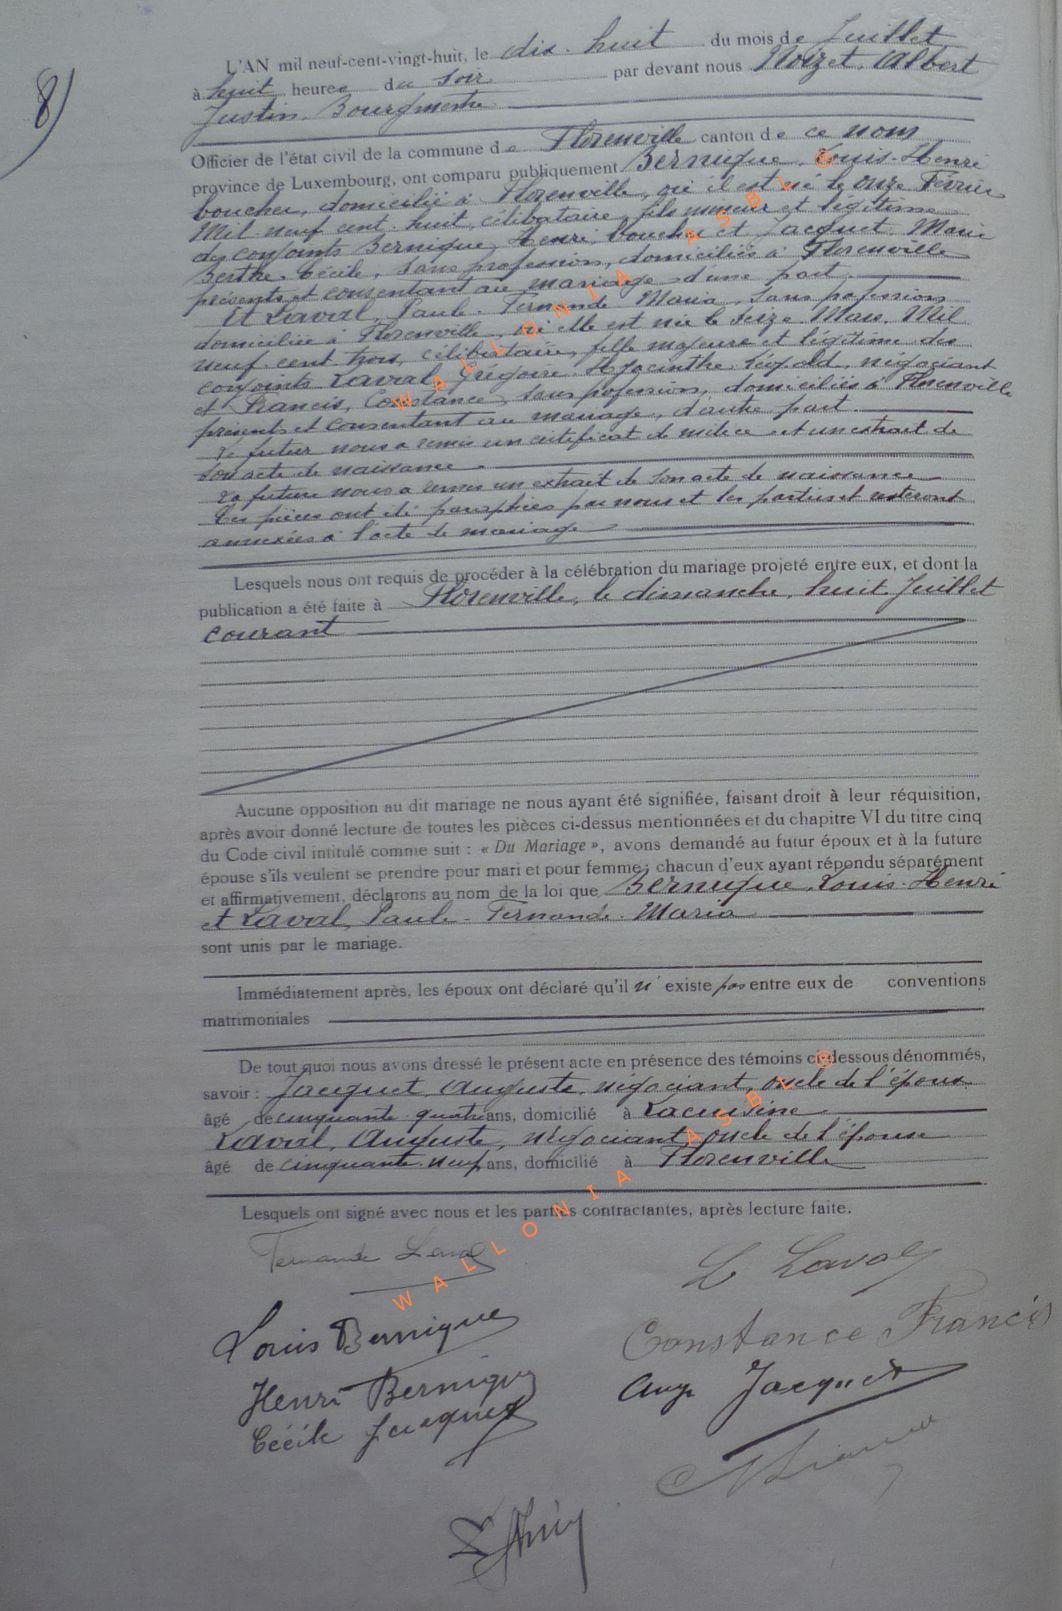 8)
L'AN mil neuf-cent-vingt-huit, le dix-huit du mois de Juillet
à huit heures du soir par devant nous Noizet, Albert
Justin Bourgmestre
Officier de l'état civil de la commune de Florenville canton de ce nom
province de Luxembourg, ont comparu publiquement Bernique, Louis-Henri
boucher, domicilié à Florenville, où il est né le onze Février
Mil neuf cent huit, célibataire, fils mineur et légitime
des conjoints Bernique, Henri, boucher et Jacquet, Marie
Berthe-Cécile, sans profession, domiciliés à Florenville
présents et consentant au mariage d'une part.
Et Laval, Paule-Fernande-Maria, sans profession
domiciliée à Florenville, où elle est née le seize Mars, Mil
neuf cent trois, célibataire, fille majeure et légitime des
conjoints Laval, Grégoire-Hyacinthe-Léopold, négociant
et Francis, Constance, sans profession, domiciliés à Florenville
présents et consentant au mariage, d'autre part.
Le futur nous a remis un certificat de milice et un extrait de
son acte de naissance.
La future nous a remis un extrait de son acte de naissance
Ces pièces ont été paraphées par nous et les parties et resteront
annexées à l'acte de mariage
Lesquels nous ont requis de procéder à la célébration du mariage projeté entre eux, et dont la
publication a été faite à Florenville, le dimanche, huit Juillet
courant
Aucune opposition au dit mariage ne nous ayant été signifiée, faisant droit à leur réquisition,
après avoir donné lecture de toutes les pièces ci-dessus mentionnées et du chapitre VI du titre cinq
du Code civil intitulé comme suit : « Du Mariage », avons demandé au futur époux et à la future
épouse s'ils veulent se prendre pour mari et pour femme; chacun d'eux ayant répondu séparément
et affirmativement, déclarons au nom de la loi que Bernique, Louis-Henri
et Laval, Paule-Fernande-Maria
sont unis par le mariage.
Immédiatement après, les époux ont déclaré qu'il n'existe pas entre eux de conventions
matrimoniales
De tout quoi nous avons dressé le présent acte en présence des témoins ci-dessous dénommés,
savoir : Jacquet, Auguste, négociant, oncle de l'époux
âgé de cinquante-quatre ans, domicilié à Lacuisine
Laval, Auguste, négociant, oncle de l'épouse
âgé de cinquante-neuf ans, domicilié à Florenville
Lesquels ont signé avec nous et les parties contractantes, après lecture faite.
Fernande Laval
L Laval
Louis Bernique
Constance Francis
Henri Bernique
Aug. Jacquet
Cécile Jacquet
WALLONIA ASBL ©
WALLONIA ASBL ©